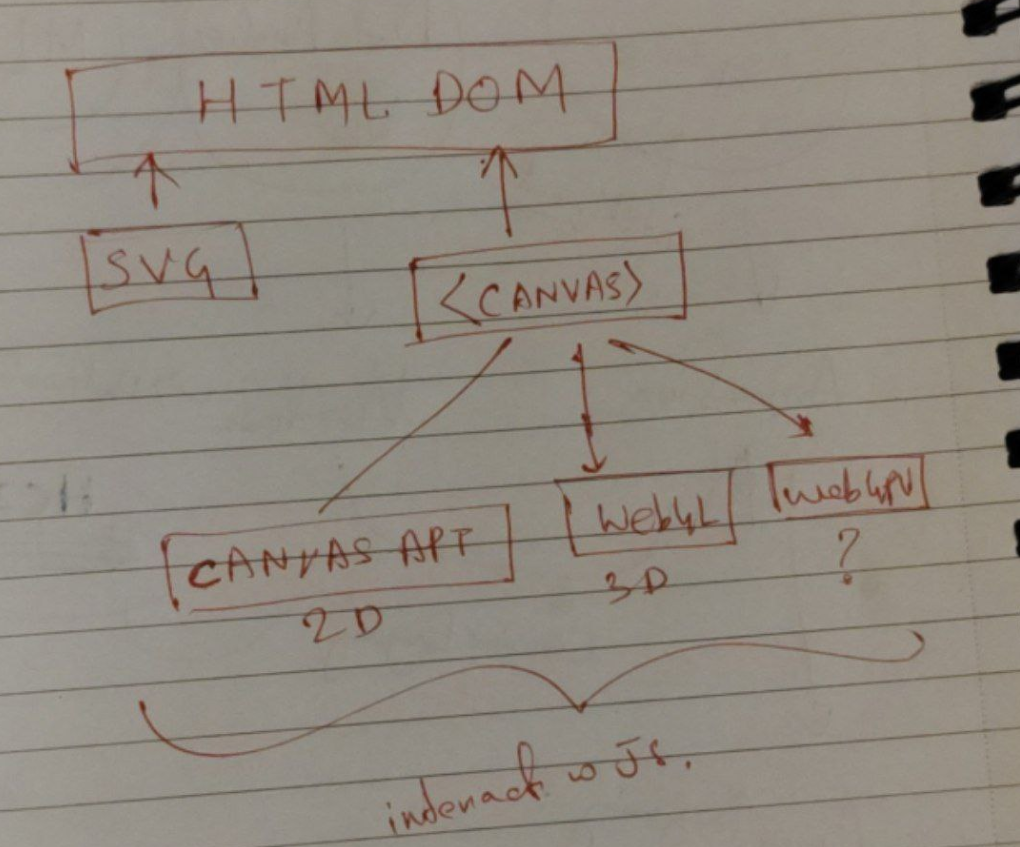 HTML DOM
SVG
<CANVAS>
CANVAS API
WebGL
WebGPU
2D
3D
?
interact w JS.